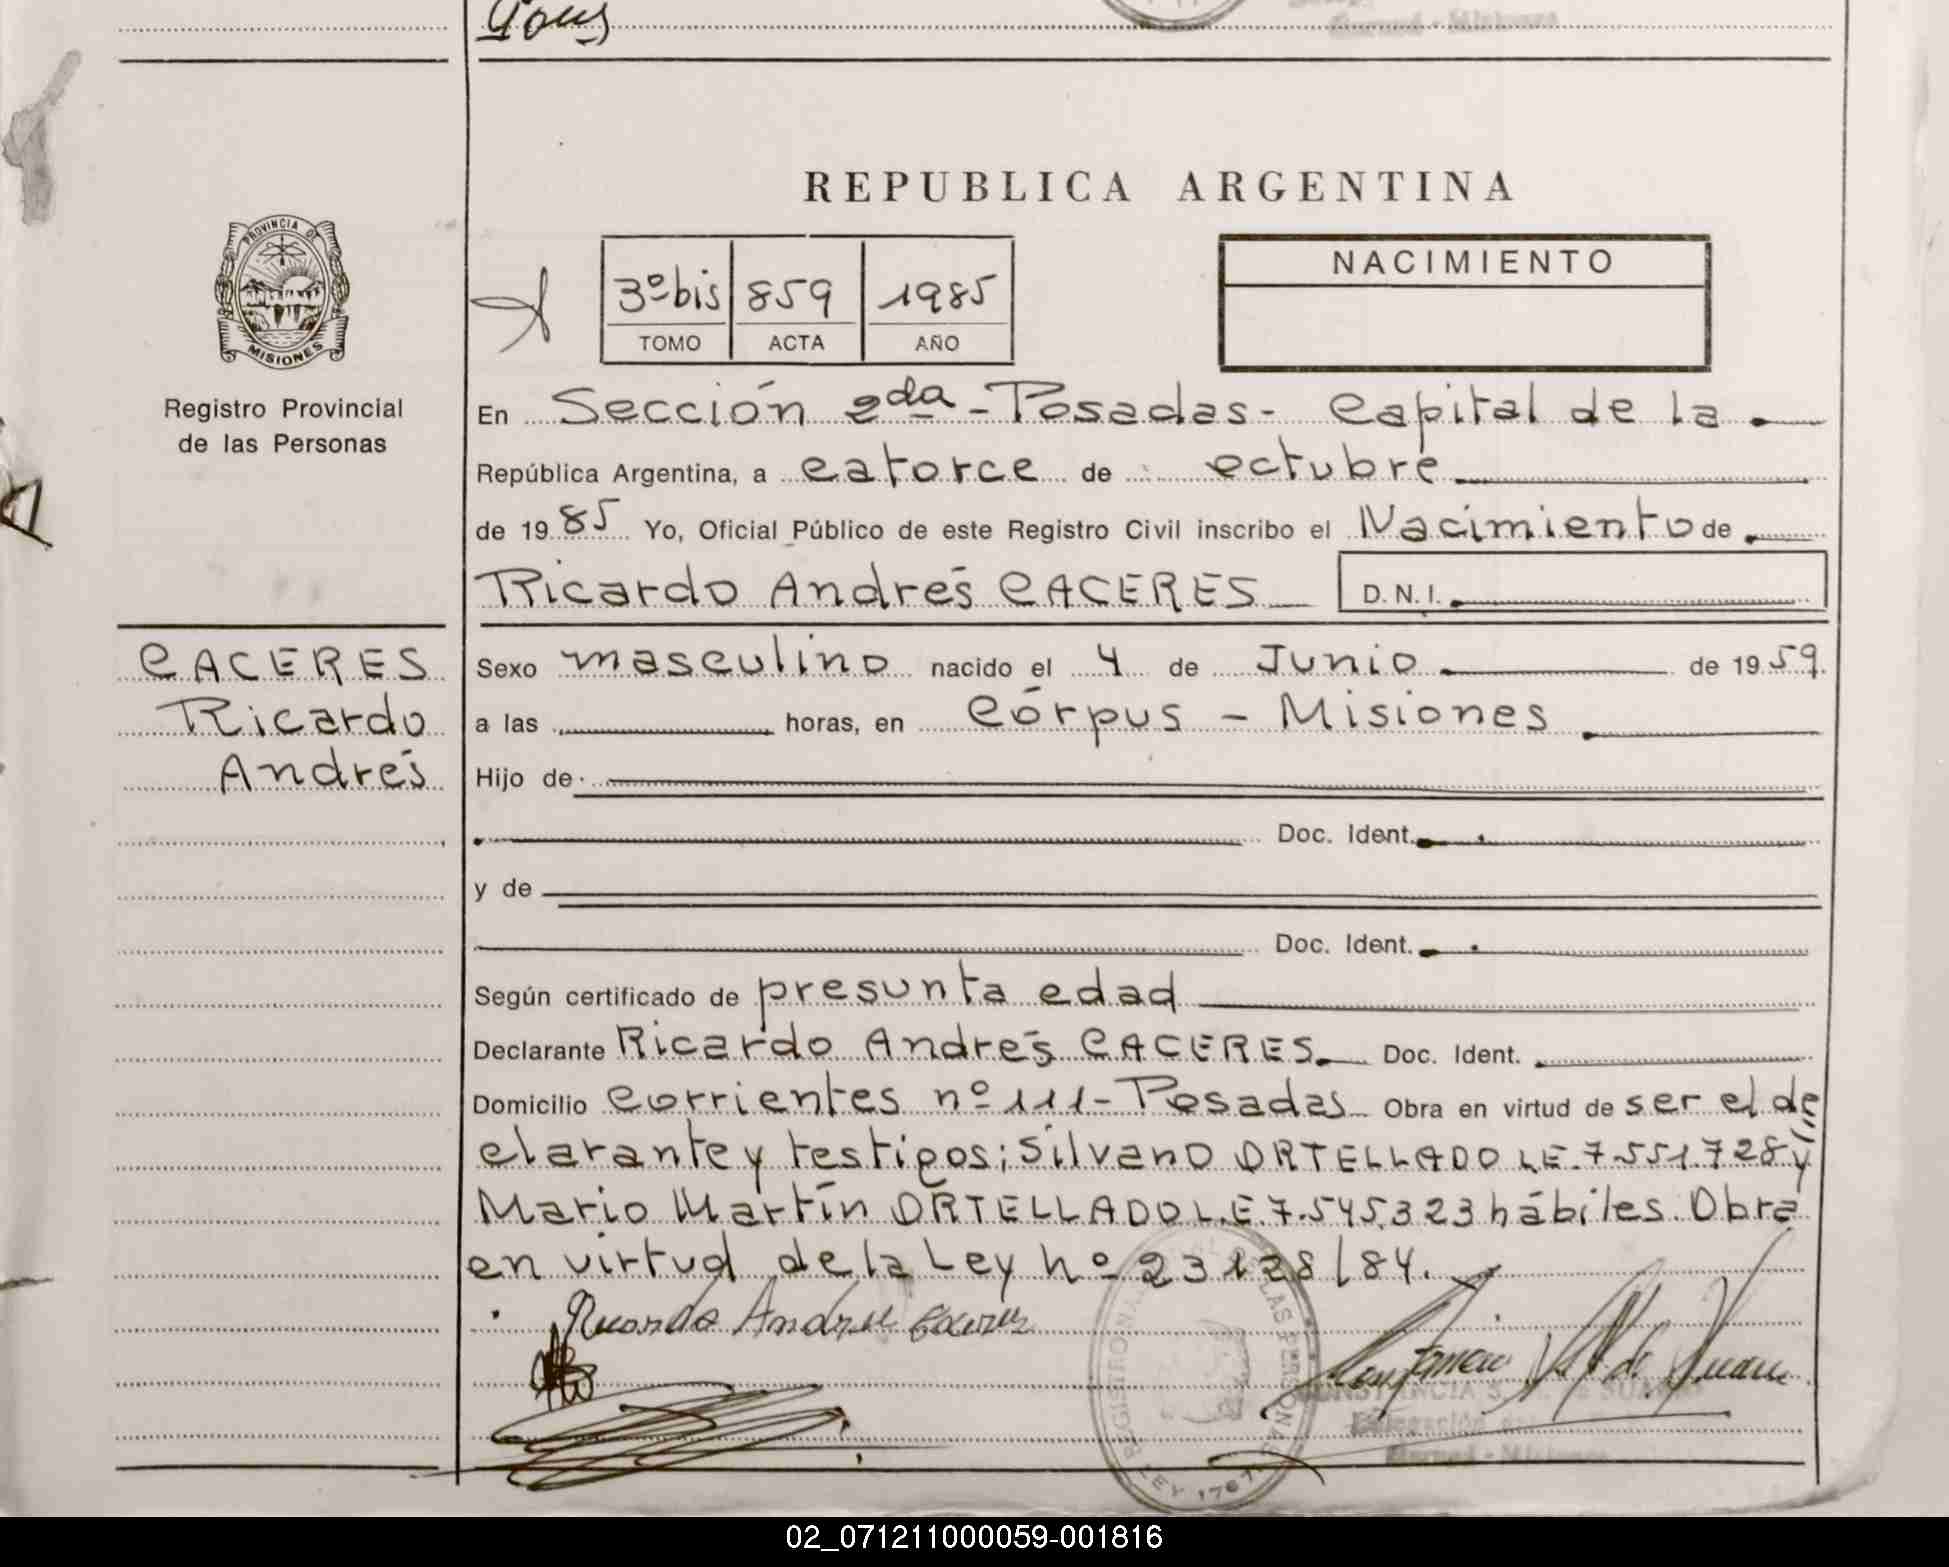 PROVINCIA DE
MISIONES
Registro Provincial
de las Personas
CACERES
Ricardo
Andrés
REPUBLICA ARGENTINA
3º bis 859 1985
TOMO ACTA AÑO
NACIMIENTO
En Sección 2da - Posadas - Capital de la
República Argentina, a catorce de octubre
de 1985 Yo, Oficial Público de este Registro Civil inscribo el Nacimiento de
Ricardo Andrés CACERES D.N.I.
Sexo masculino nacido el 4 de Junio de 1959
a las horas, en Córpus - Misiones
Hijo de
Doc. Ident.
y de
Doc. Ident.
Según certificado de presunta edad
Declarante Ricardo Andrés CACERES Doc. Ident.
Domicilio Corrientes nº 111 - Posadas Obra en virtud de ser el de
clarante y testigos; Silvano ORTELLADO L.E. 7.551.728 y
Mario Martín ORTELLADO L.E 7.545.323 hábiles. Obra
en virtud de la Ley nº 23128/84.
Ricardo Andres Caceres
02_071211000059-001816